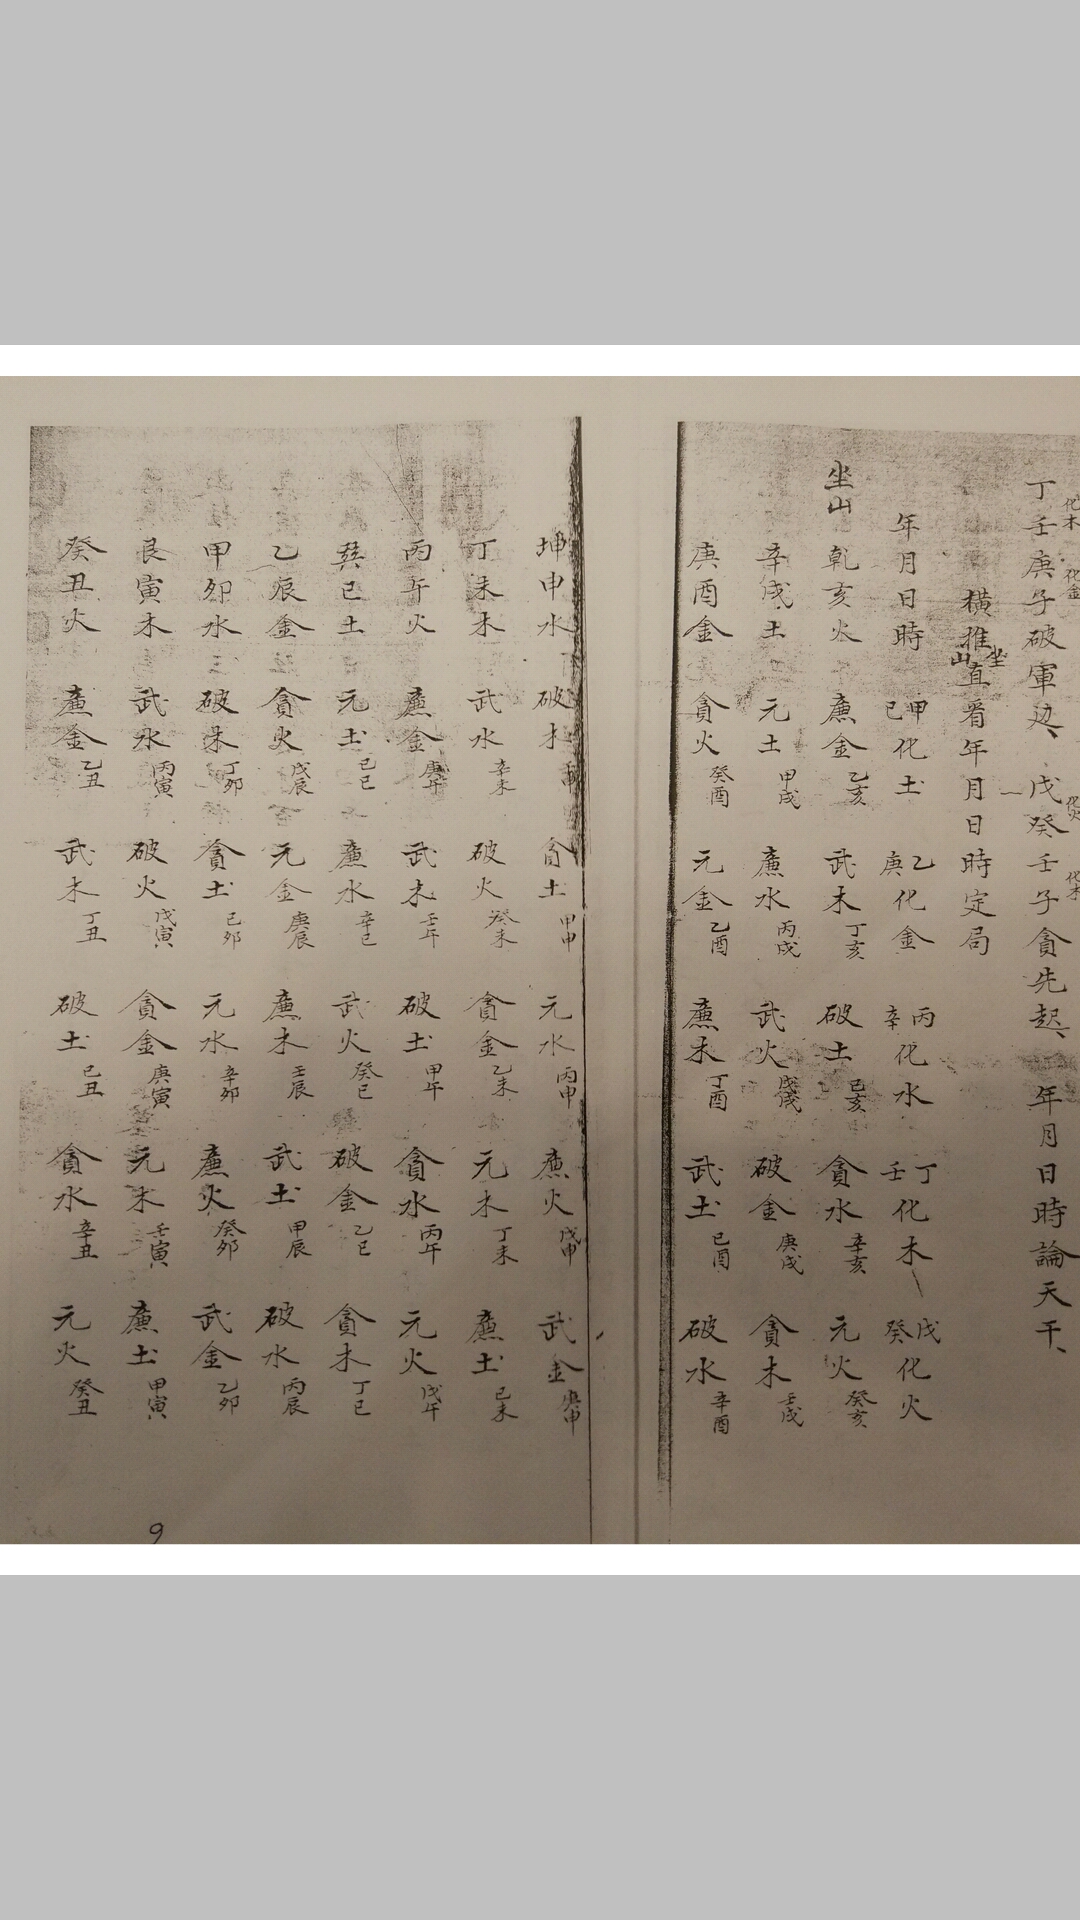 丁壬庚子破軍边、戊癸壬子貪先起、年月日時論天干、
化木
化金
化火
化木
橫推直看年月日時定局
坐山
年月日時 甲己化土 乙庚化金 丙辛化水 丁壬化木 戊癸化火
坐山
乾亥火 廉金乙亥 武木丁亥 破土己亥 貪水辛亥 元火癸亥
辛戌土 元土甲戌 廉水丙戌 武火戊戌 破金庚戌 貪木壬戌
庚酉金 貪火癸酉 元金乙酉 廉木丁酉 武土己酉 破水辛酉
坤申水 破木 貪土甲申 元水丙申 廉火戊申 武金庚申
丁未木 武水辛未 破火癸未 貪金乙未 元木丁未 廉土己未
丙午火 廉金庚午 武木壬午 破土甲午 貪水丙午 元火戊午
巽巳土 元土己巳 廉水辛巳 武火癸巳 破金乙巳 貪木丁巳
乙辰金 貪火戊辰 元金庚辰 廉木壬辰 武土甲辰 破水丙辰
甲卯水 破木丁卯 貪土己卯 元水辛卯 廉火癸卯 武金乙卯
艮寅木 武水丙寅 破火戊寅 貪金庚寅 元木壬寅 廉土甲寅
癸丑火 廉金乙丑 武木丁丑 破土己丑 貪水辛丑 元火癸丑
9